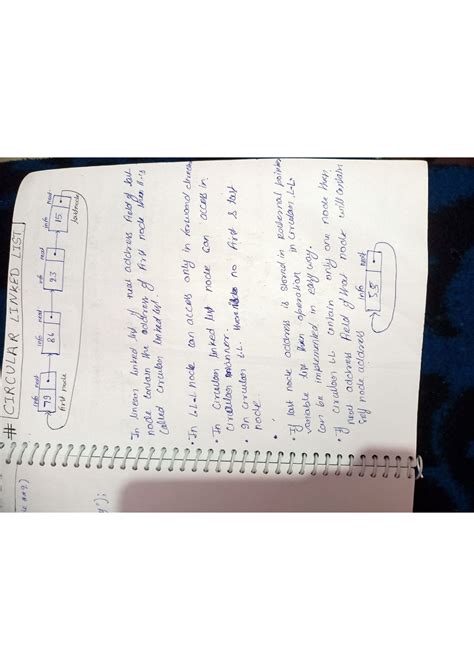 # CIRCULAR LINKED LIST
info next info next info next info next
79 86 93 15
first node lastnode
In linear linked list if next address field of last
node contain the address of first node then it is
called circular linked list.
• In L.L node can access only in forward
• In Circular linked list node can access in
circular manner.
• In circular L.L. there is no first & last
node.
• If last node address is stored in external pointer
variable then operation in circular L.L.
can be implemented in easy way.
• If circular LL contain only one node then
next address field of that node will contain
self node address
info next
55